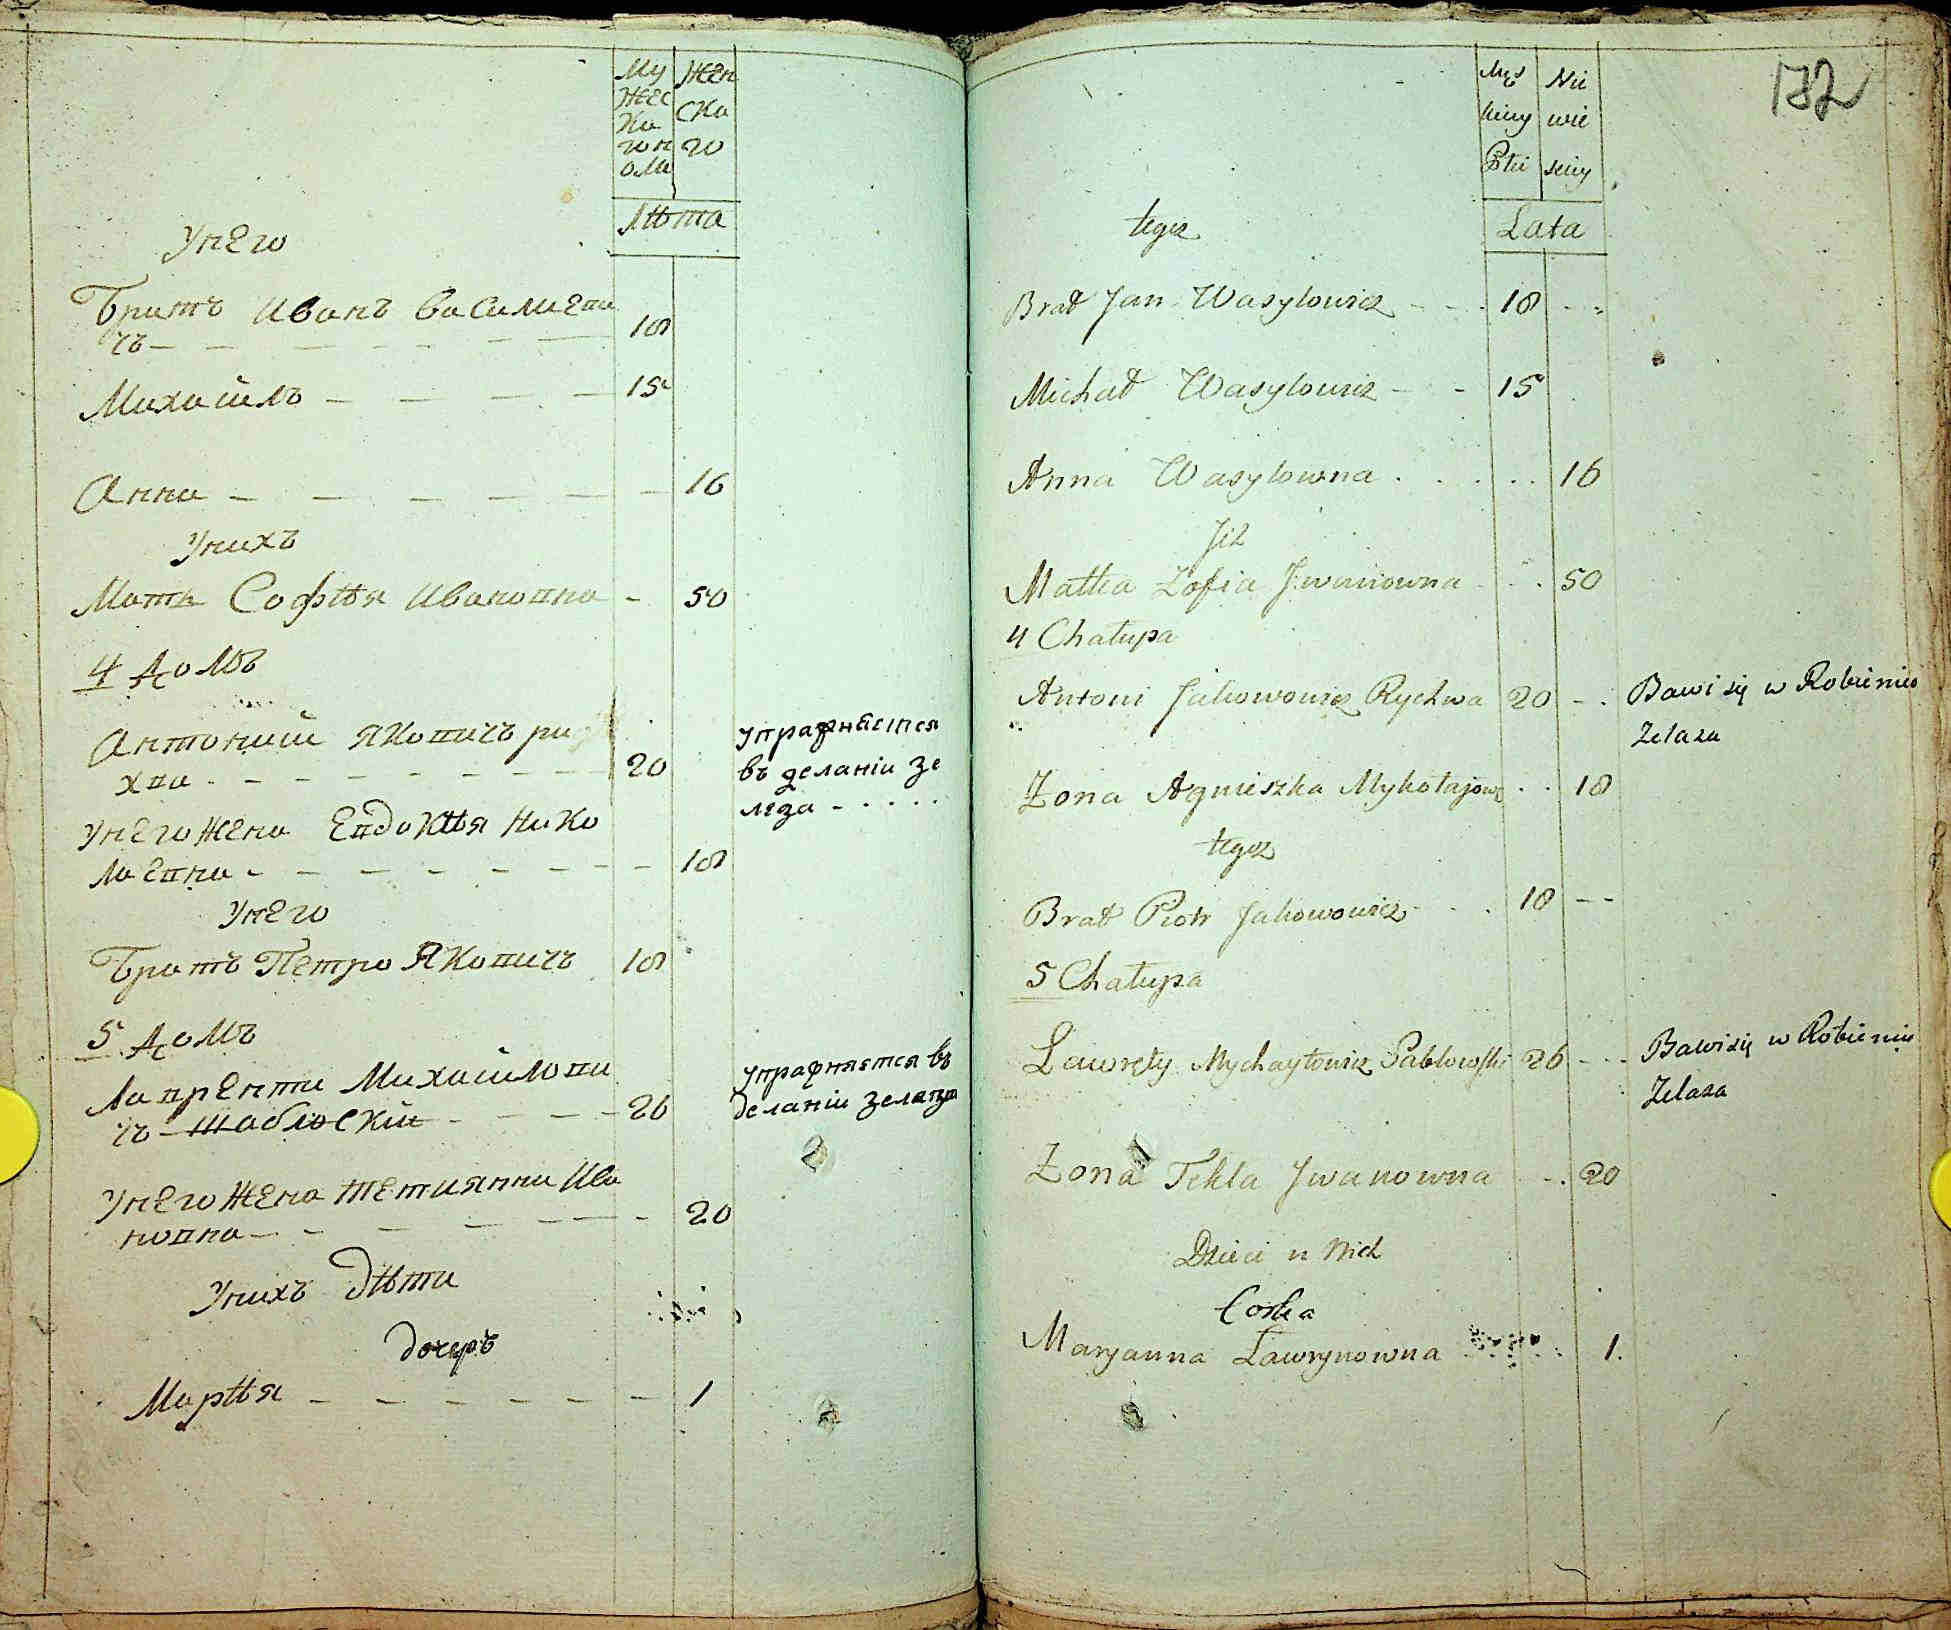 Му Жен
жес ска
ка го
го п
оли
Лѣта
Унего
Братъ Иванъ Василиеви
чъ — — — — — — — 18
Михаилъ — — — — 15
Анна — — — — — — — 16
Унихъ
Мать Софѣя Ивановна — 50
4 домъ
Антоний Яковичъ ры
хва - - - - - - - - - 20
упражняется
въ деланіи зе
леза - - - - -
Унего Жена Евдокѣя Нико
лаевна - - - - - - - - 18
Унего
Братъ Петро Яковичъ 18
5 домъ
Лаврентий Михайлови
чъ — Паблоский - - - - - 26
упражняется въ
деланіи зелеза
Унего Жена Тетиянна Ива
новна — - - - - - - 20
Унихъ дѣти
дочеръ
Марѣя — — — — — — 1
132
Męs Nie
kiey wie
Płci sciey
Lata
tegoz
Brat Jan Wasylowicz - - - 18 - -
Michał Wasylowicz - - 15
Anna Wasylowna . . . . . . 16
Jch
Matka Zofia Jwanowna - . . 50
4 Chałupa
Antoni Jakowowicz Rychwa 20 - .
Bawi się w Robieniu
Zelaza
Zona Agnieszka Mykołajow . . 18
tegoz
Brat Piotr Jakowowicz - . . 18 - -
5 Chałupa
Lawręty Mychayłowicz Pabłowski 26 - - -
Bawi się w Robieniu
Zelaza
Zona Tekla Jwanowna - . . 20
Dzieci u Nich
Corka
Maryanna Ławrynowna . . . . 1.